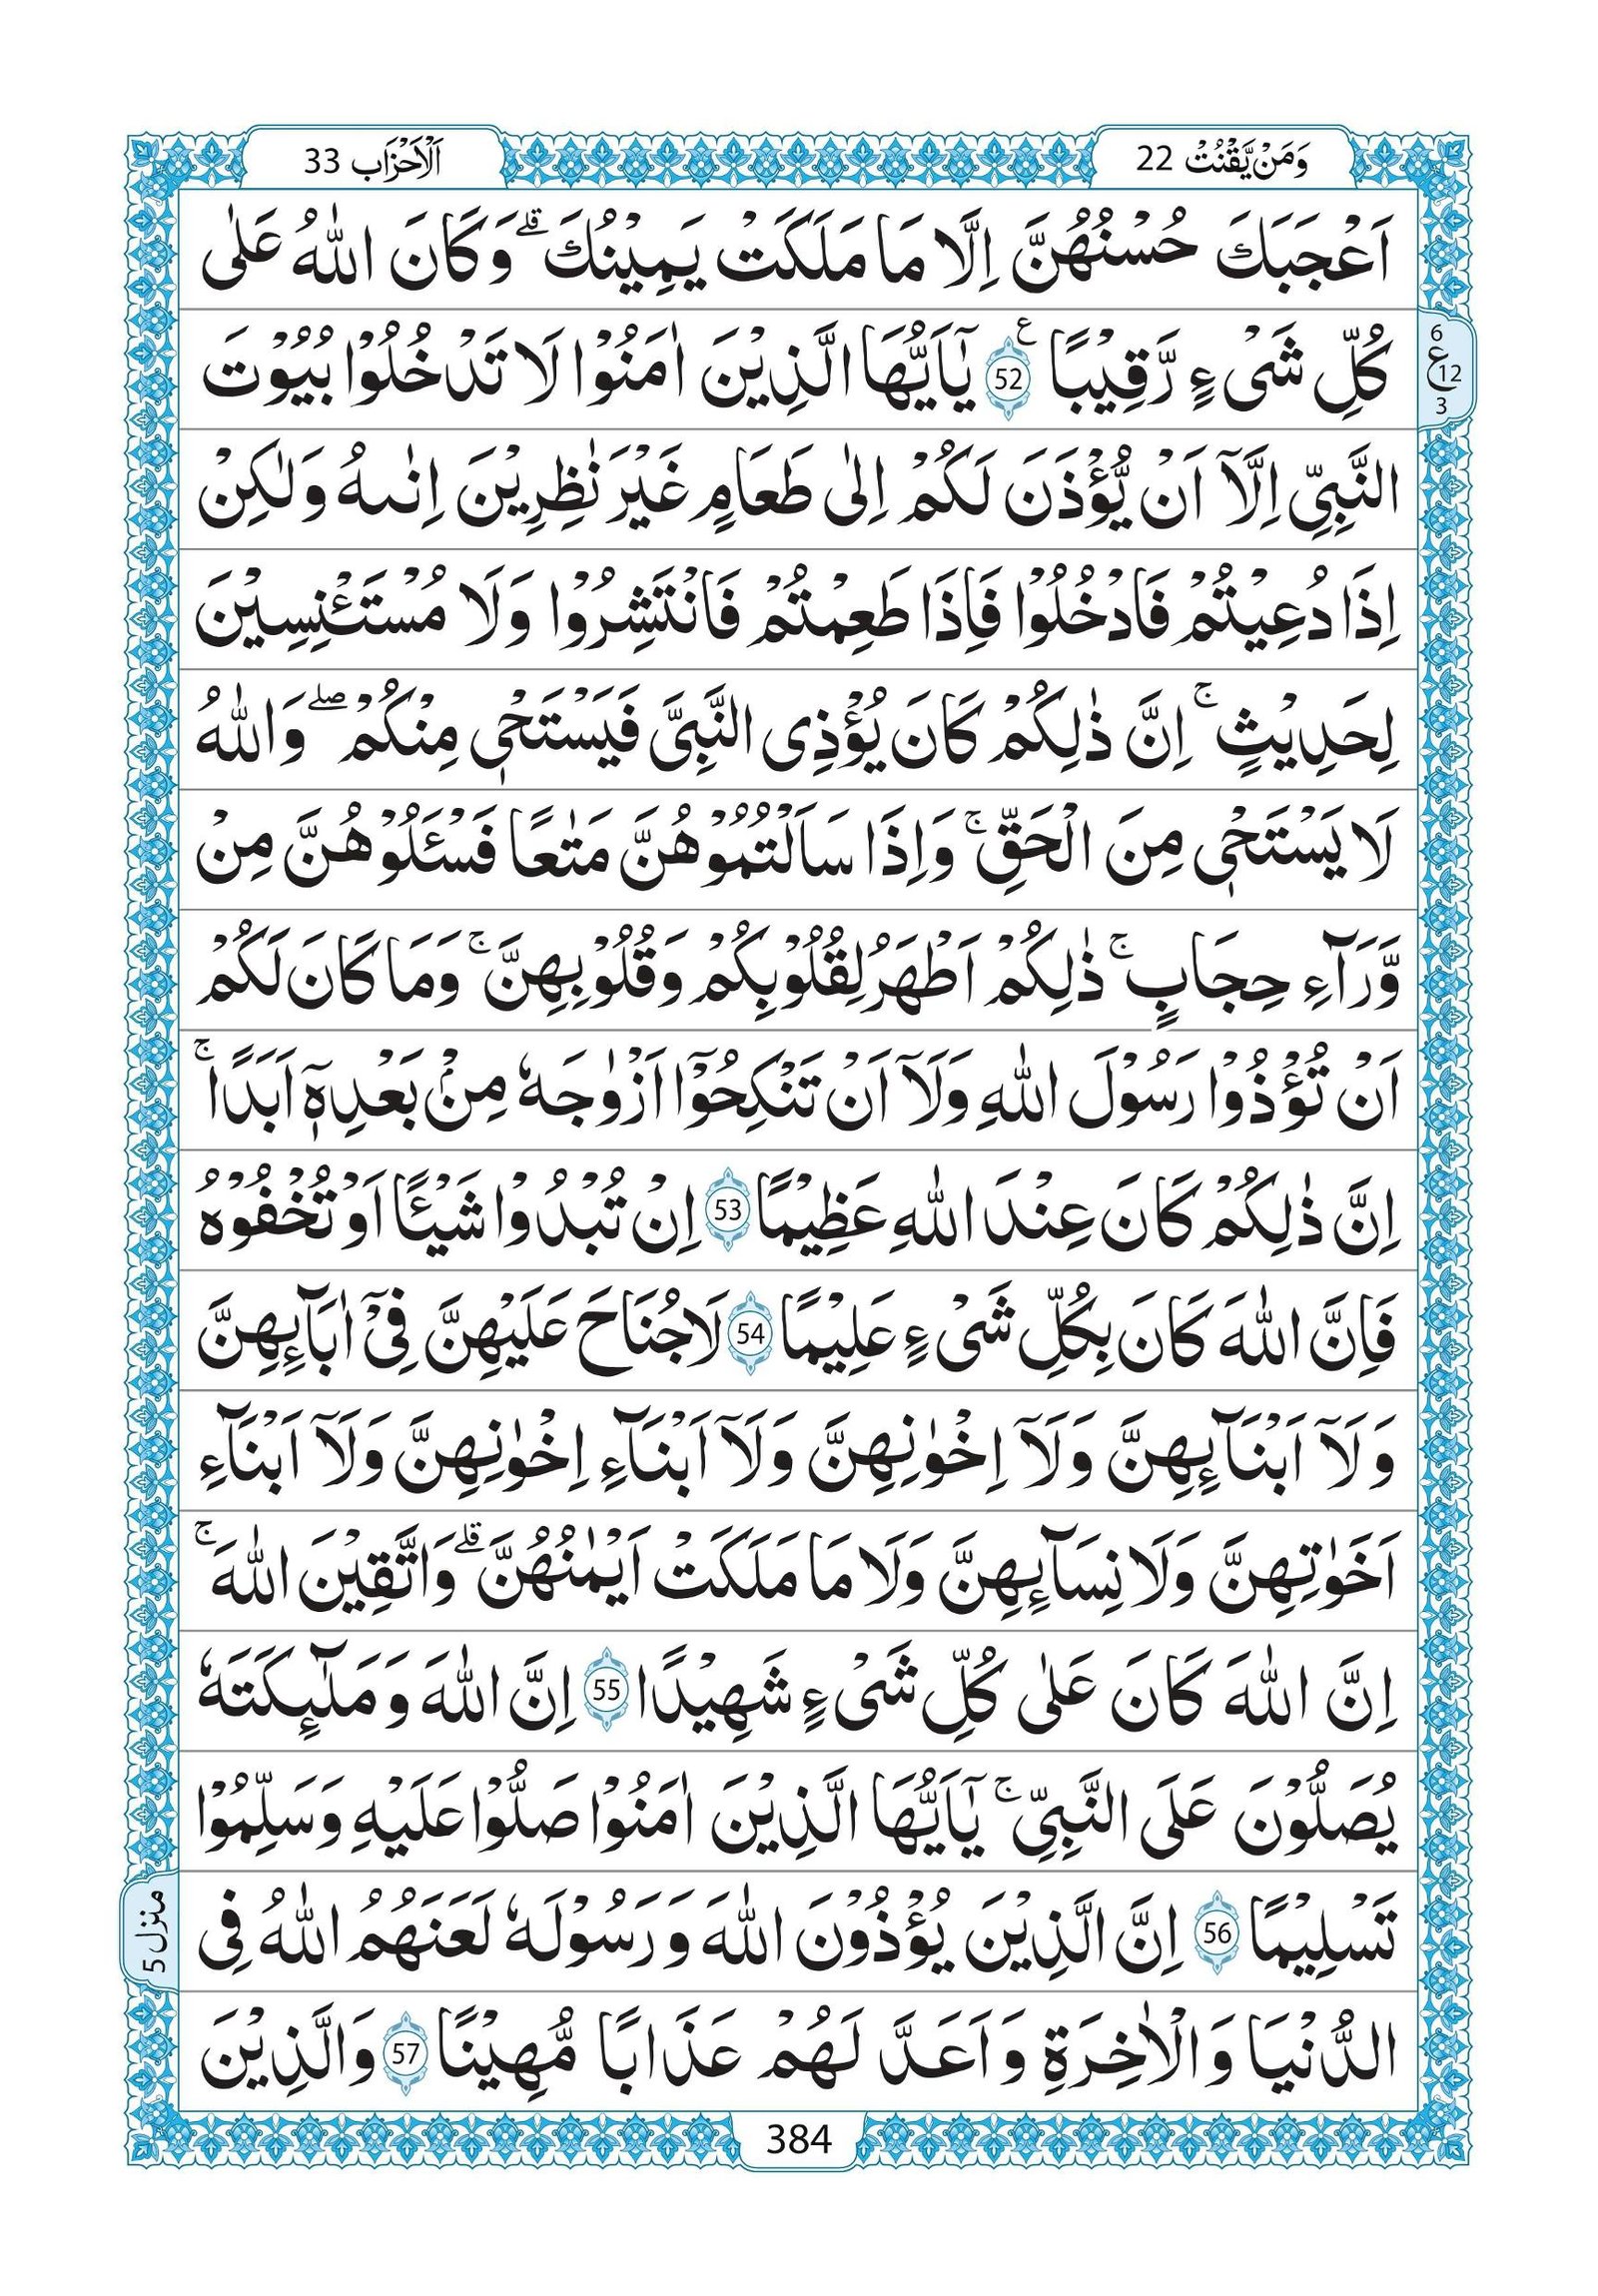 وَمَنْ يَّقْنُتْ 22
اَلْاَحْزَاب 33
اَعْجَبَكَ حُسْنُهُنَّ اِلَّا مَا مَلَكَتْ يَمِيْنُكَ ۗ وَكَانَ اللّٰهُ عَلٰى
كُلِّ شَىْءٍ رَّقِيْبًا ع 52 يٰٓاَيُّهَا الَّذِيْنَ اٰمَنُوْا لَا تَدْخُلُوْا بُيُوْتَ
6
ع 12
3
النَّبِىِّ اِلَّآ اَنْ يُّؤْذَنَ لَكُمْ اِلٰى طَعَامٍ غَيْرَ نٰظِرِيْنَ اِنٰىهُ وَلٰكِنْ
اِذَا دُعِيْتُمْ فَادْخُلُوْا فَاِذَا طَعِمْتُمْ فَانْتَشِرُوْا وَلَا مُسْتَـْٔنِسِيْنَ
لِحَدِيْثٍ ۚ اِنَّ ذٰلِكُمْ كَانَ يُؤْذِى النَّبِىَّ فَيَسْتَحْىٖ مِنْكُمْ ۖ وَاللّٰهُ
لَا يَسْتَحْىٖ مِنَ الْحَقِّ ۚ وَاِذَا سَاَلْتُمُوْهُنَّ مَتٰعًا فَسْـَٔلُوْهُنَّ مِنْ
وَّرَآءِ حِجَابٍ ۚ ذٰلِكُمْ اَطْهَرُ لِقُلُوْبِكُمْ وَقُلُوْبِهِنَّ ۚ وَمَا كَانَ لَكُمْ
اَنْ تُؤْذُوْا رَسُوْلَ اللّٰهِ وَلَآ اَنْ تَنْكِحُوْٓا اَزْوٰجَهٗ مِنْۢ بَعْدِهٖٓ اَبَدًا ۚ
اِنَّ ذٰلِكُمْ كَانَ عِنْدَ اللّٰهِ عَظِيْمًا 53 اِنْ تُبْدُوْا شَيْـًٔا اَوْ تُخْفُوْهُ
فَاِنَّ اللّٰهَ كَانَ بِكُلِّ شَىْءٍ عَلِيْمًا 54 لَا جُنَاحَ عَلَيْهِنَّ فِىْٓ اٰبَآئِهِنَّ
وَلَآ اَبْنَآئِهِنَّ وَلَآ اِخْوٰنِهِنَّ وَلَآ اَبْنَآءِ اِخْوٰنِهِنَّ وَلَآ اَبْنَآءِ
اَخَوٰتِهِنَّ وَلَا نِسَآئِهِنَّ وَلَا مَا مَلَكَتْ اَيْمٰنُهُنَّ ۗ وَاتَّقِيْنَ اللّٰهَ ۚ
اِنَّ اللّٰهَ كَانَ عَلٰى كُلِّ شَىْءٍ شَهِيْدًا 55 اِنَّ اللّٰهَ وَمَلٰٓئِكَتَهٗ
يُصَلُّوْنَ عَلَى النَّبِىِّ ۚ يٰٓاَيُّهَا الَّذِيْنَ اٰمَنُوْا صَلُّوْا عَلَيْهِ وَسَلِّمُوْا
تَسْلِيْمًا 56 اِنَّ الَّذِيْنَ يُؤْذُوْنَ اللّٰهَ وَرَسُوْلَهٗ لَعَنَهُمُ اللّٰهُ فِى
منزل 5
الدُّنْيَا وَالْاٰخِرَةِ وَاَعَدَّ لَهُمْ عَذَابًا مُّهِيْنًا 57 وَالَّذِيْنَ
384